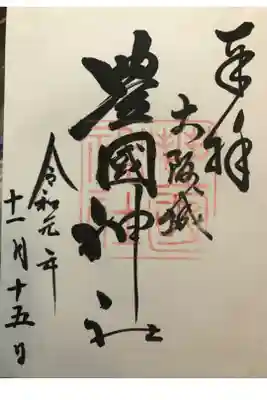 奉拝
大阪城
豊國神社
令和元年
十一月十五日